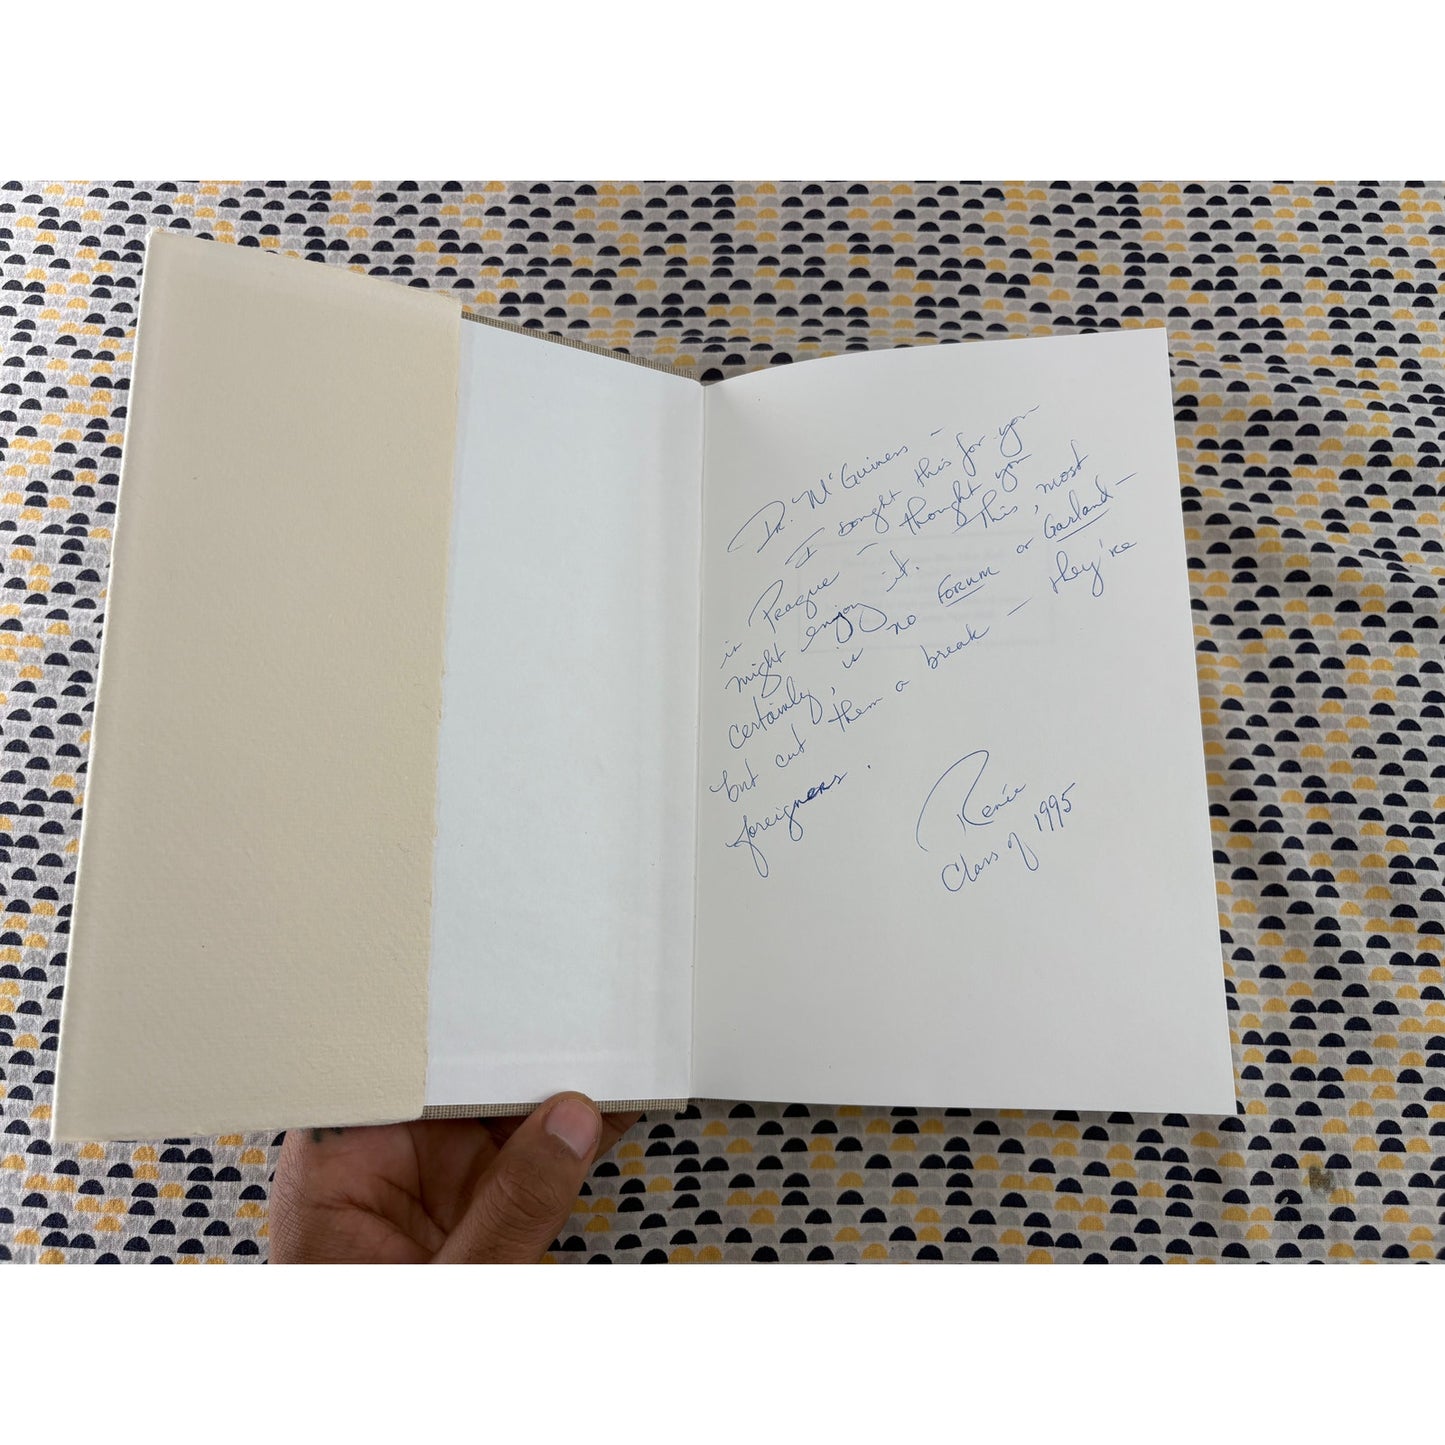 Dr. McGuiness –
I bought this for you
in Prague – thought you
might enjoy it. This, most
certainly, is no FORUM or Garland –
but cut them a break – they're
foreigners.
Renée
Class of 1995